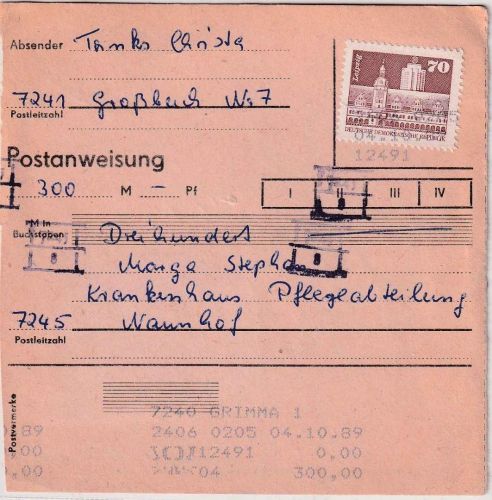 Absender Tanks Christa
70
Leipzig
DEUTSCHE DEMOKRATISCHE REPUBLIK
04.10
12491
7241 Großbuch Nr 7
Postleitzahl
Postanweisung
300 M — Pf I II III IV
M in Buchstaben Dreihundert
Marga Stephan
Krankenhaus Pflegeabteilung
7245 Naunhof
Postleitzahl
Postvermerke
7240 GRIMMA 1
.89 2406 0205 04.10.89
,00 12491 0,00
.00 04 300,00